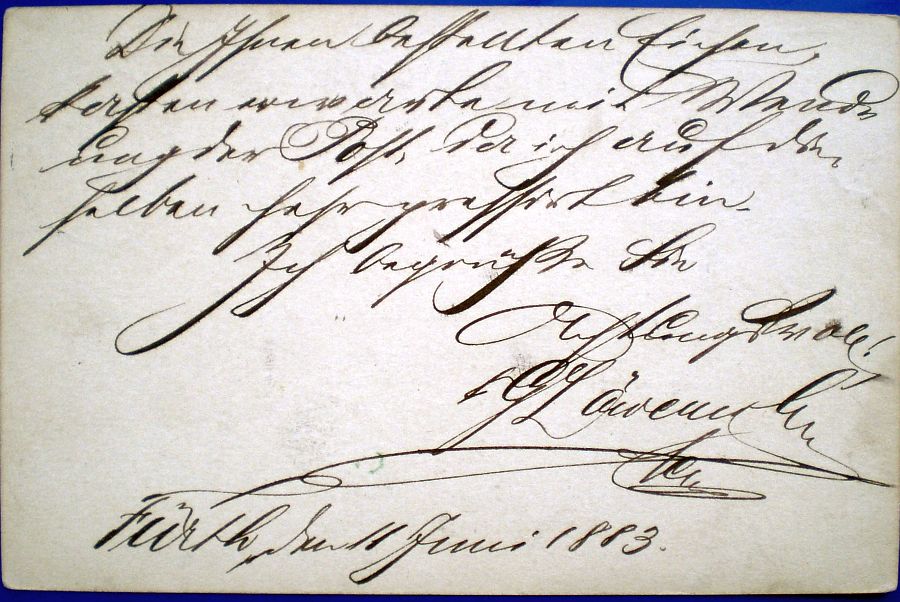 Die Ihnen bestellten Eichen
kasten erwarte mit Wend
ung der Post, da ich auf die
selben sehr pressirt bin.
Ich begrüße Sie
Achtungsvoll
G Löwensohn
Fürth, den 11 Juni 1883.